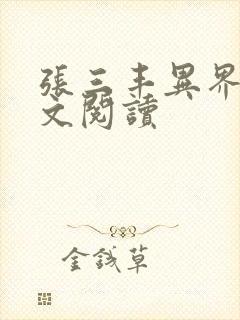 張三丰異界
文閱讀
金錢草